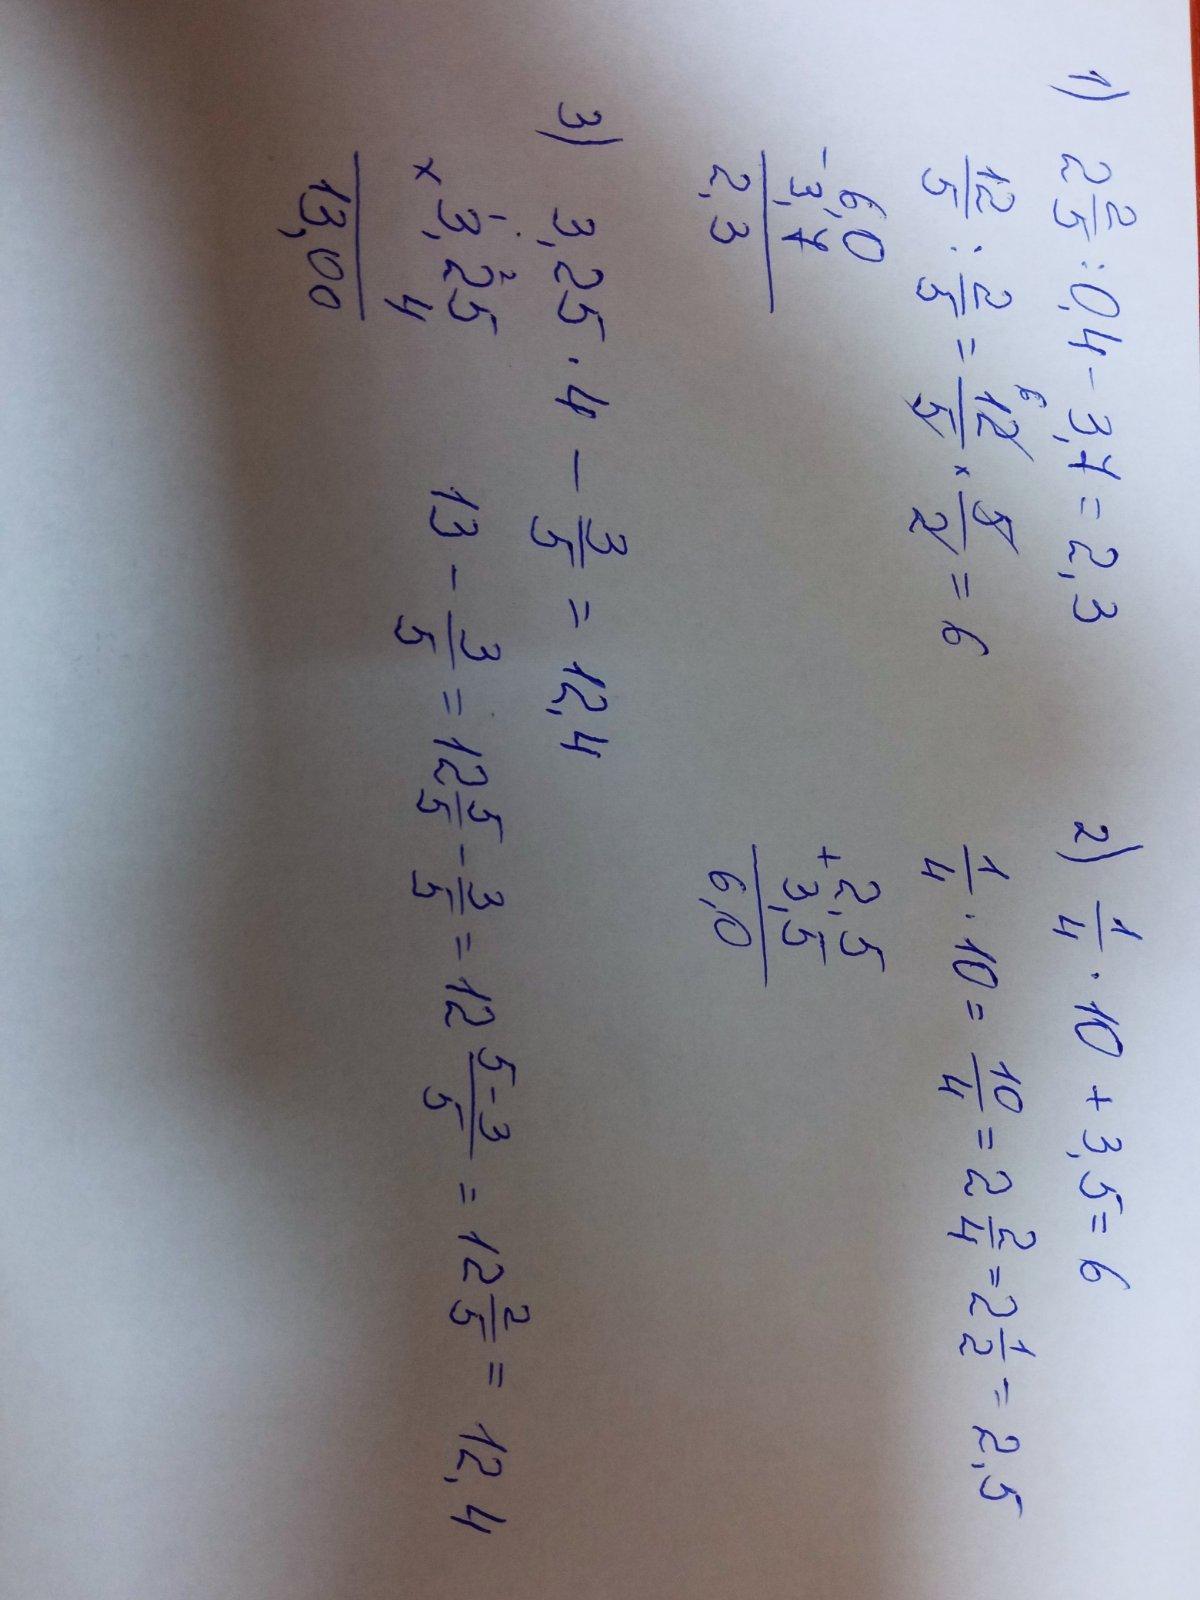 1) 2 2/5 : 0,4 - 3,7 = 2,3
12/5 : 2/5 = 12/5 × 5/2 = 6
6
- 6,0
3,7
2,3
2) 1/4 · 10 + 3,5 = 6
1/4 · 10 = 10/4 = 2 2/4 = 2 1/2 = 2,5
+ 2,5
3,5
6,0
3) 3,25 · 4 - 3/5 = 12,4
1 2
× 3,25
4
13,00
13 - 3/5 = 12 5/5 - 3/5 = 12 5-3/5 = 12 2/5 = 12,4